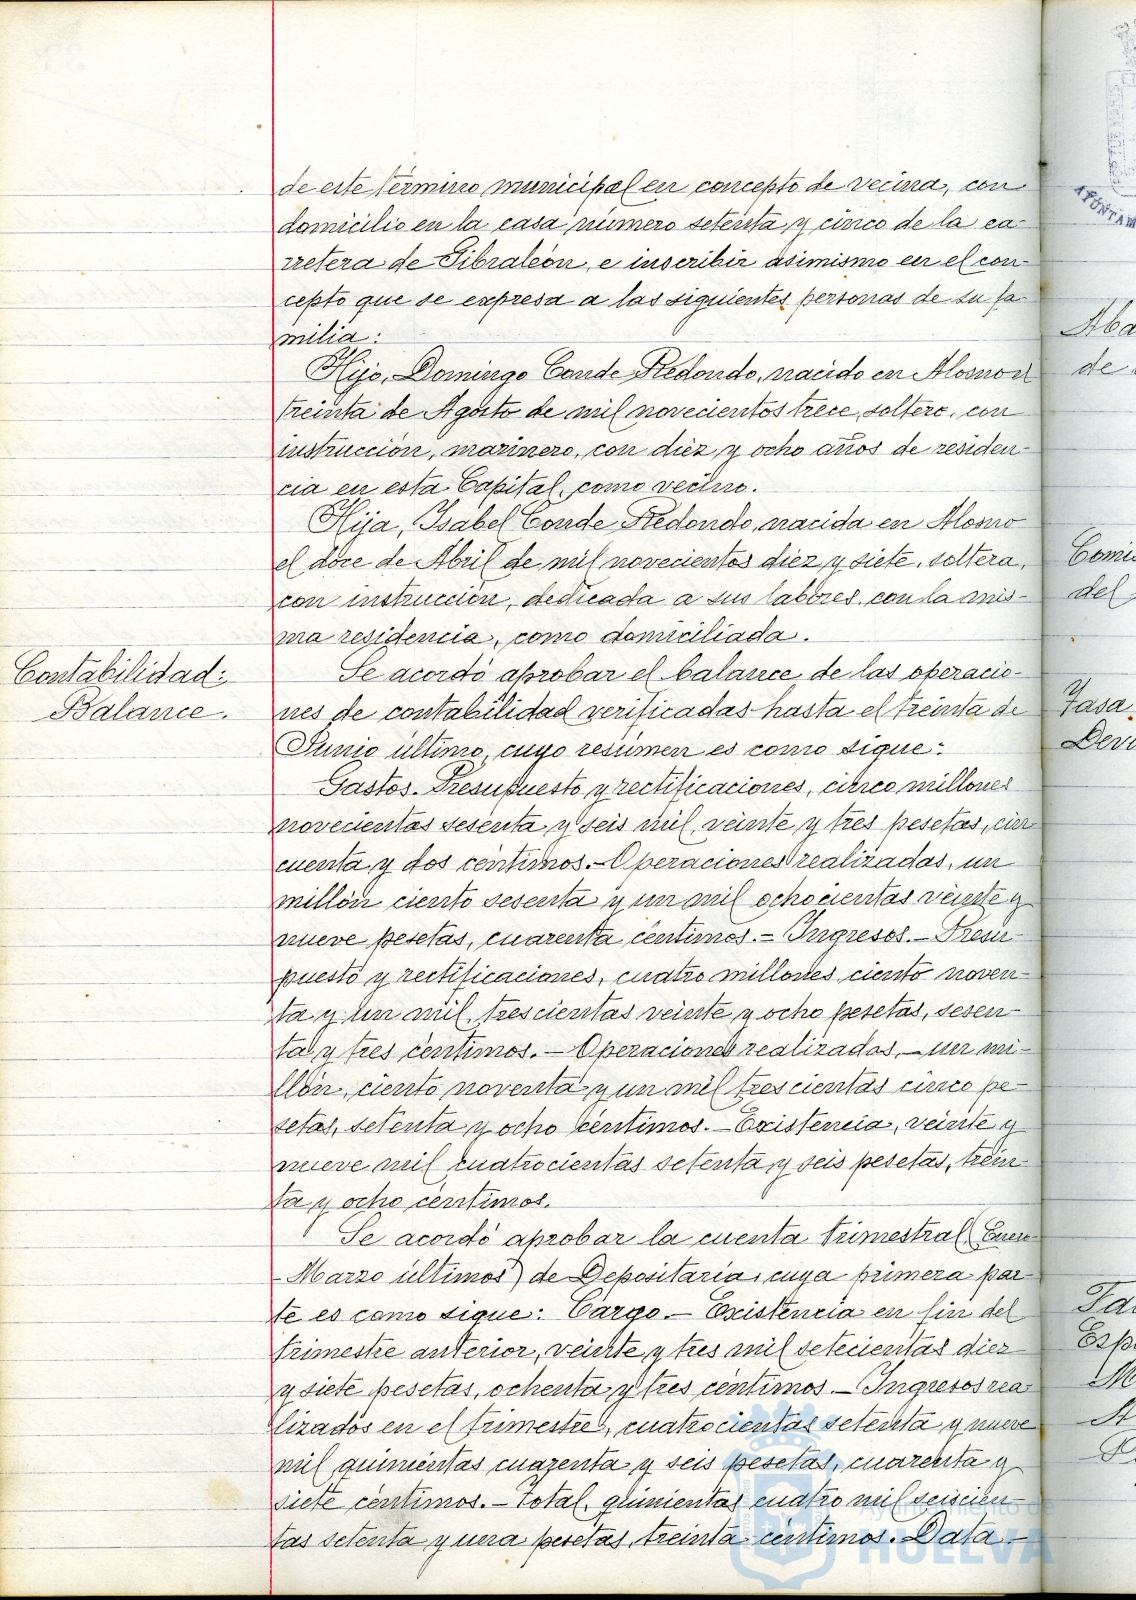 de este término municipal en concepto de vecina, con
domicilio en la casa número setenta y cinco de la ca-
rretera de Gibraleón, e inscribir asimismo en el con-
cepto que se expresa a las siguientes personas de su fa-
milia:
Hijo, Domingo Conde Redondo, nacido en Alosno el
treinta de Agosto de mil novecientos trece, soltero, con
instrucción, marinero, con diez y ocho años de residen-
cia en esta Capital, como vecino.
Hija, Isabel Conde Redondo, nacida en Alosno
el doce de Abril de mil novecientos diez y siete, soltera,
con instrucción, dedicada a sus labores, con la mis-
ma residencia, como domiciliada.
Contabilidad:
Balance.
Se acordó aprobar el balance de las operacio-
nes de contabilidad verificadas hasta el treinta de
Junio último, cuyo resúmen es como sigue:
Gastos.- Presupuesto y rectificaciones, cinco millones
novecientas sesenta y seis mil, veinte y tres pesetas, cin-
cuenta y dos céntimos.- Operaciones realizadas, un
millón ciento sesenta y un mil ochocientas veinte y
nueve pesetas, cuarenta céntimos.= Ingresos.- Presu-
puesto y rectificaciones, cuatro millones ciento noven-
ta y un mil, trescientas veinte y ocho pesetas, sesen-
ta y tres céntimos.- Operaciones realizadas,- un mi-
llón, ciento noventa y un mil trescientas cinco pe-
setas, setenta y ocho céntimos.- Existencia, veinte y
nueve mil cuatrocientas setenta y seis pesetas, trein-
ta y ocho céntimos.
Se acordó aprobar la cuenta trimestral (Enero-
-Marzo últimos) de Depositaria, cuya primera par-
te es como sigue: Cargo.- Existencia en fin del
trimestre anterior, veinte y tres mil setecientas diez
y siete pesetas, ochenta y tres céntimos.- Ingresos rea-
lizados en el trimestre, cuatrocientas setenta y nueve
mil quinientas cuarenta y seis pesetas, cuarenta y
siete céntimos.- Total, quinientas cuatro mil seiscien-
tas setenta y una pesetas, treinta céntimos. Data.-
Ayuntamiento de
HUELVA